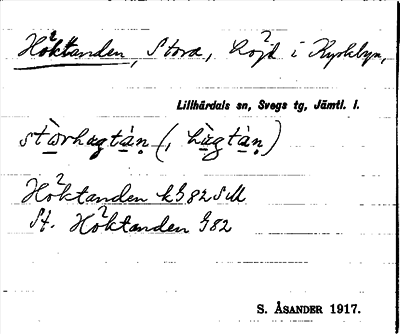 Höktanden, Stora, höjd i Kyrkbyn,
Lillhärdals sn, Svegs tg, Jämtl. l.
stòrhøgtàṇ (, hø̀gtàṇ)
Höktanden kG82SM
St. Höktanden G82
S. ÅSANDER 1917.